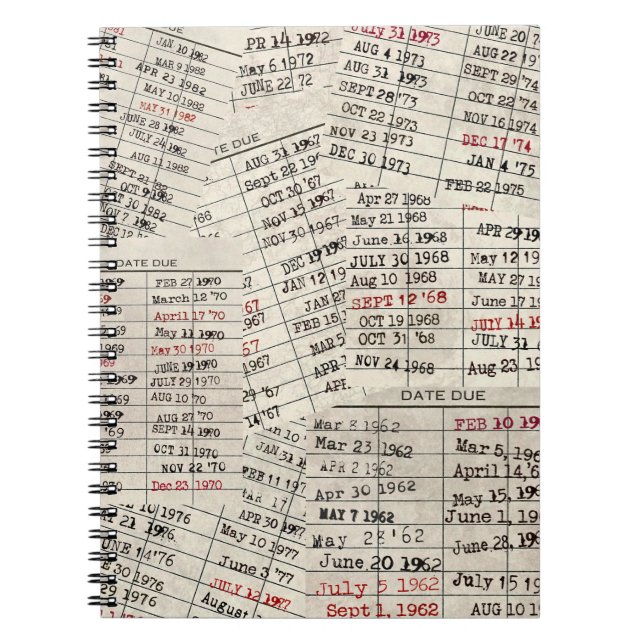 JAN 10 1982
MAR 9 1982
APR 23 1982
MAY 10 1982
MAY 31 1982
JUNE 28 1982
JULY 24 1982
AUG 11 1982
SEPT 21 '82
OCT 9 1982
OCT 30 1982
NOV 7 1982
DEC 12
PR 14 1972
May 6 1972
JUNE 22 '72
July 31 1973
AUG 4 1973
AUG 31 1973
SEPT 28 '73
OCT 22 1973
NOV 23 1973
DEC 30 1973
JUNE 20 '
AUG 22 19
SEPT 29 '74
OCT 22 '74
NOV 16 1974
DEC 17 '74
JAN 4 '75
FEB 22 1975
TE DUE
AUG 31 1967
Sept 22 1967
OCT 30 '67
NOV 15 1967
NOV 30 1967
DEC 19 1967
JAN 12 19
JAN 27
FEB 15
MAR 5
APR
APR
'66
67
1967
67
1967
'67
14 '67
Apr 27 1968
May 21 1968
June 16 1968
JULY 30 1968
Aug 10 1968
SEPT 12 '68
OCT 19 1968
OCT 31 '68
NOV 24 1968
APR 29 19
May 12
MAY 27
June 17
JULY 14 1
AUG 19
Aug 23 19
DATE DUE
FEB 27 1970
March 12 '70
April 17 '70
May 11 1970
May 30 1970
JUNE 19 1970
JULY 29 1970
AUG 10 '70
AUG 27 '70
SEPT 14 1970
OCT 31 1970
NOV 22 '70
Dec 23 1970
969
69
1969
1969
'69
DATE DUE
Mar 8 1962
Mar 23 1962
APR 2 1962
Apr 30 1962
MAY 7 1962
May 23 '62
June 20 1962
July 5 1962
Sept 1, 1962
FEB 10 19
Mar 5, 196
April 14,'6
May 15, 19
June 1, 19
June 28, 19
July 15 19
AUG 10 19
in 10 '
JAN 31
FEB 11 1
MAR 17
APR 30 197
10 1976
21 1976
UNE 14 '76
1976
29 1976
May 10 1977
June 3 '77
JULY 12 197
August